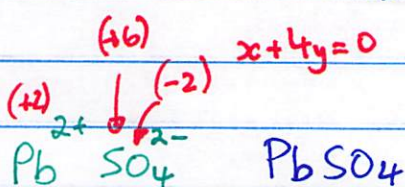 (+6) x+4y=0
(+2) (-2)
Pb²⁺ SO₄²⁻ PbSO₄